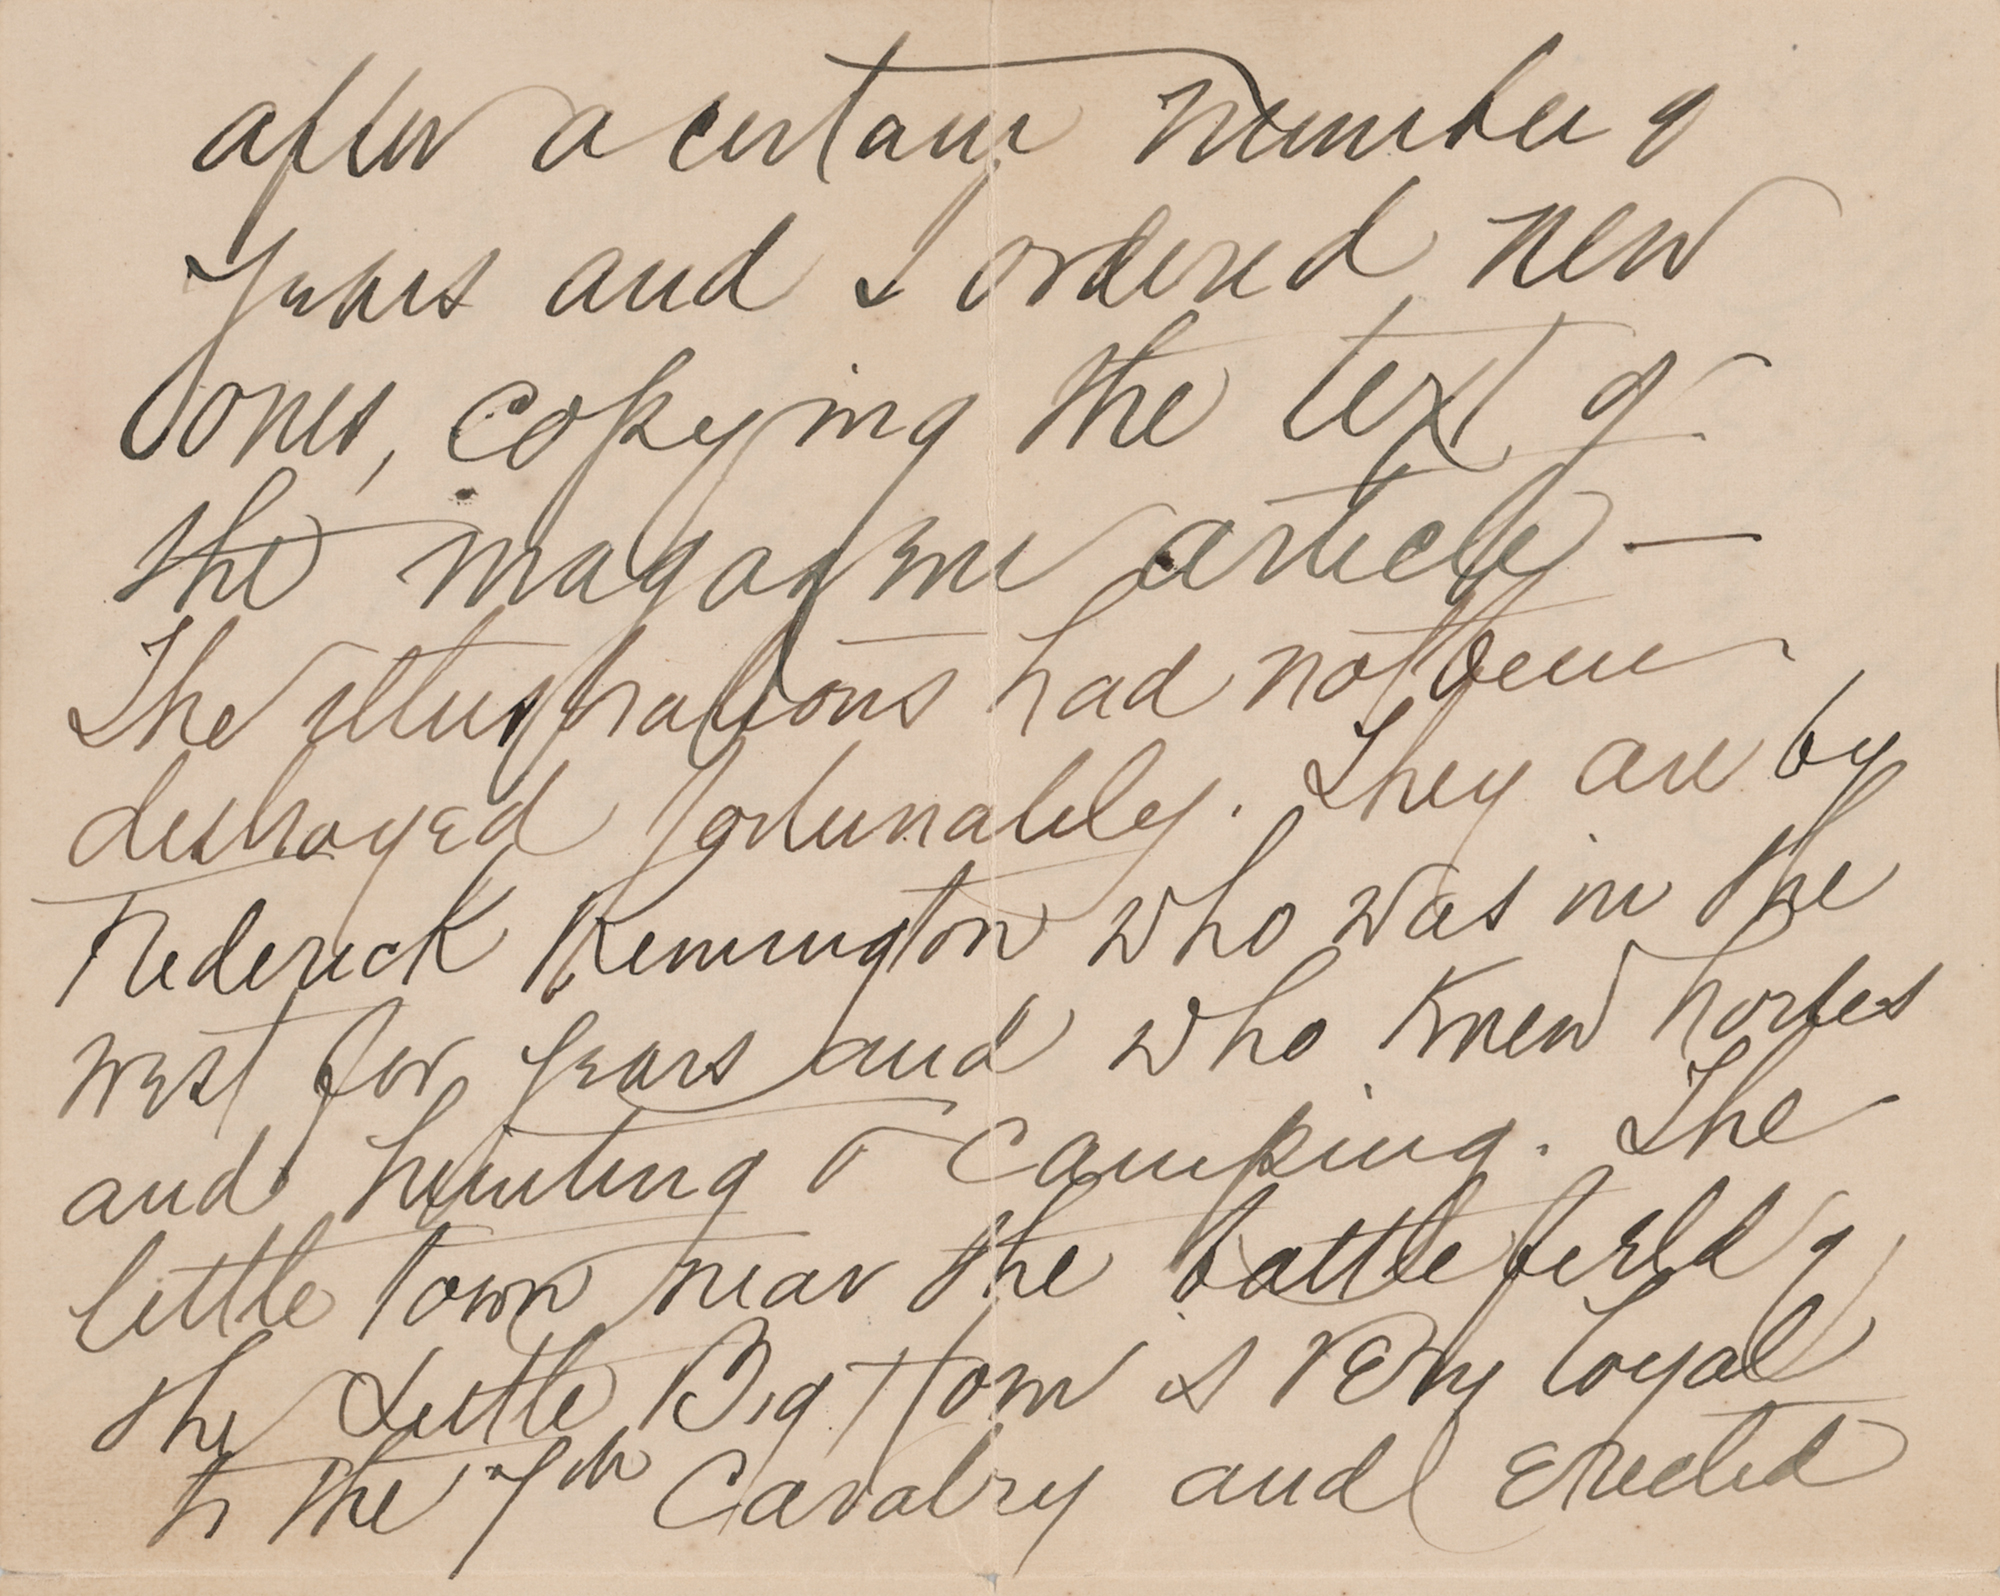 after a certain number of
years and I ordered new
ones, copying the text of
the magazine article —
The illustrations had not been
destroyed fortunately. They are by
Frederick Remington who was in the
west for years and who knew horses
and hunting & camping. The
little town near the battle field of
the Little Big Horn is very loyal
to the 7th Cavalry and erected